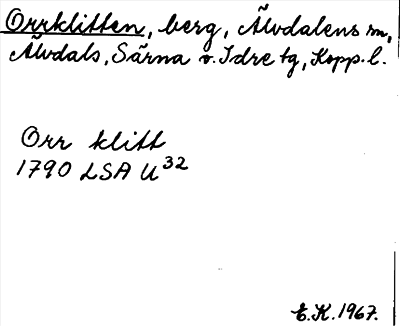 Orrklitten, berg, Älvdalens sn,
Älvdals, Särna o. Idre tg, Kopp. l.
Orr klitt
1790 LSA U32
E.K. 1967.